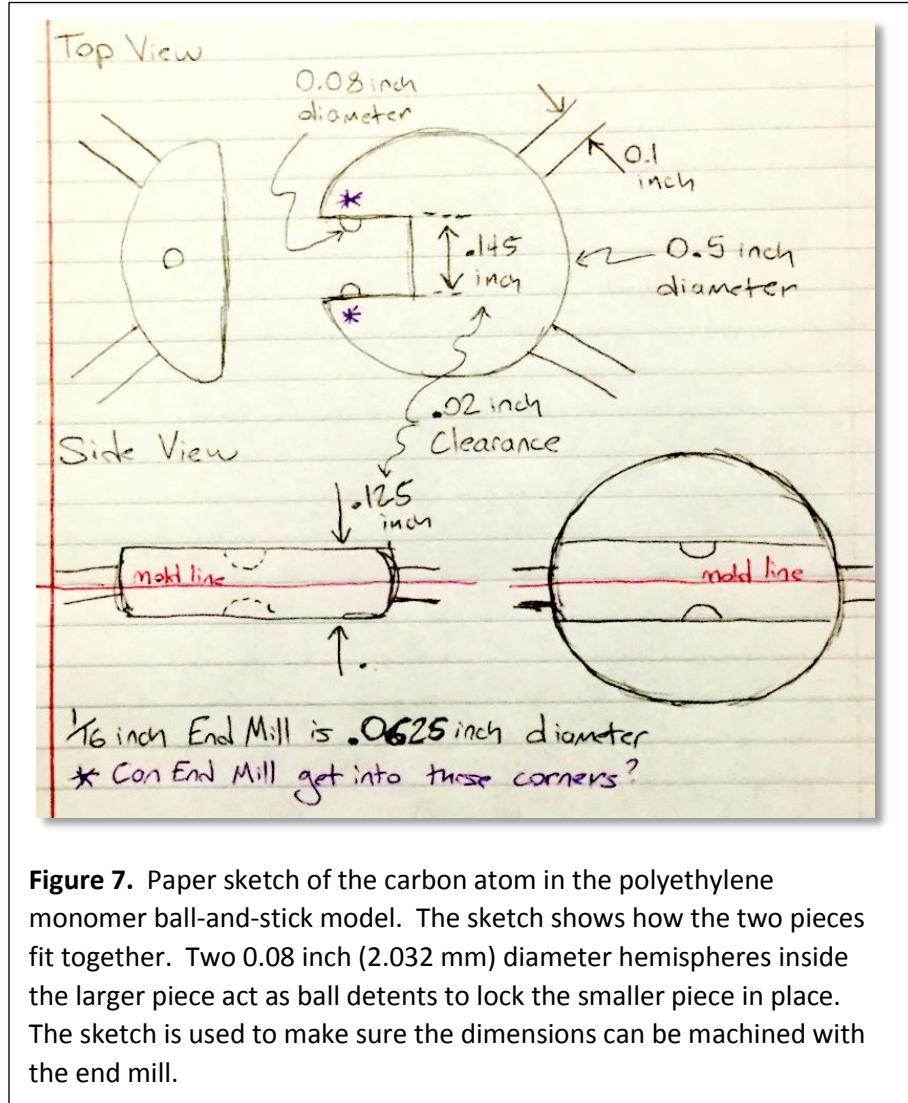 Top View
0.08 inch
diameter
0.1
inch
.145
inch
0.5 inch
diameter
.02 inch
Clearance
Side View
.125
inch
mold line
mold line
1/16 inch End Mill is .0625 inch diameter
* Can End Mill get into these corners?
Figure 7. Paper sketch of the carbon atom in the polyethylene
monomer ball-and-stick model. The sketch shows how the two pieces
fit together. Two 0.08 inch (2.032 mm) diameter hemispheres inside
the larger piece act as ball detents to lock the smaller piece in place.
The sketch is used to make sure the dimensions can be machined with
the end mill.